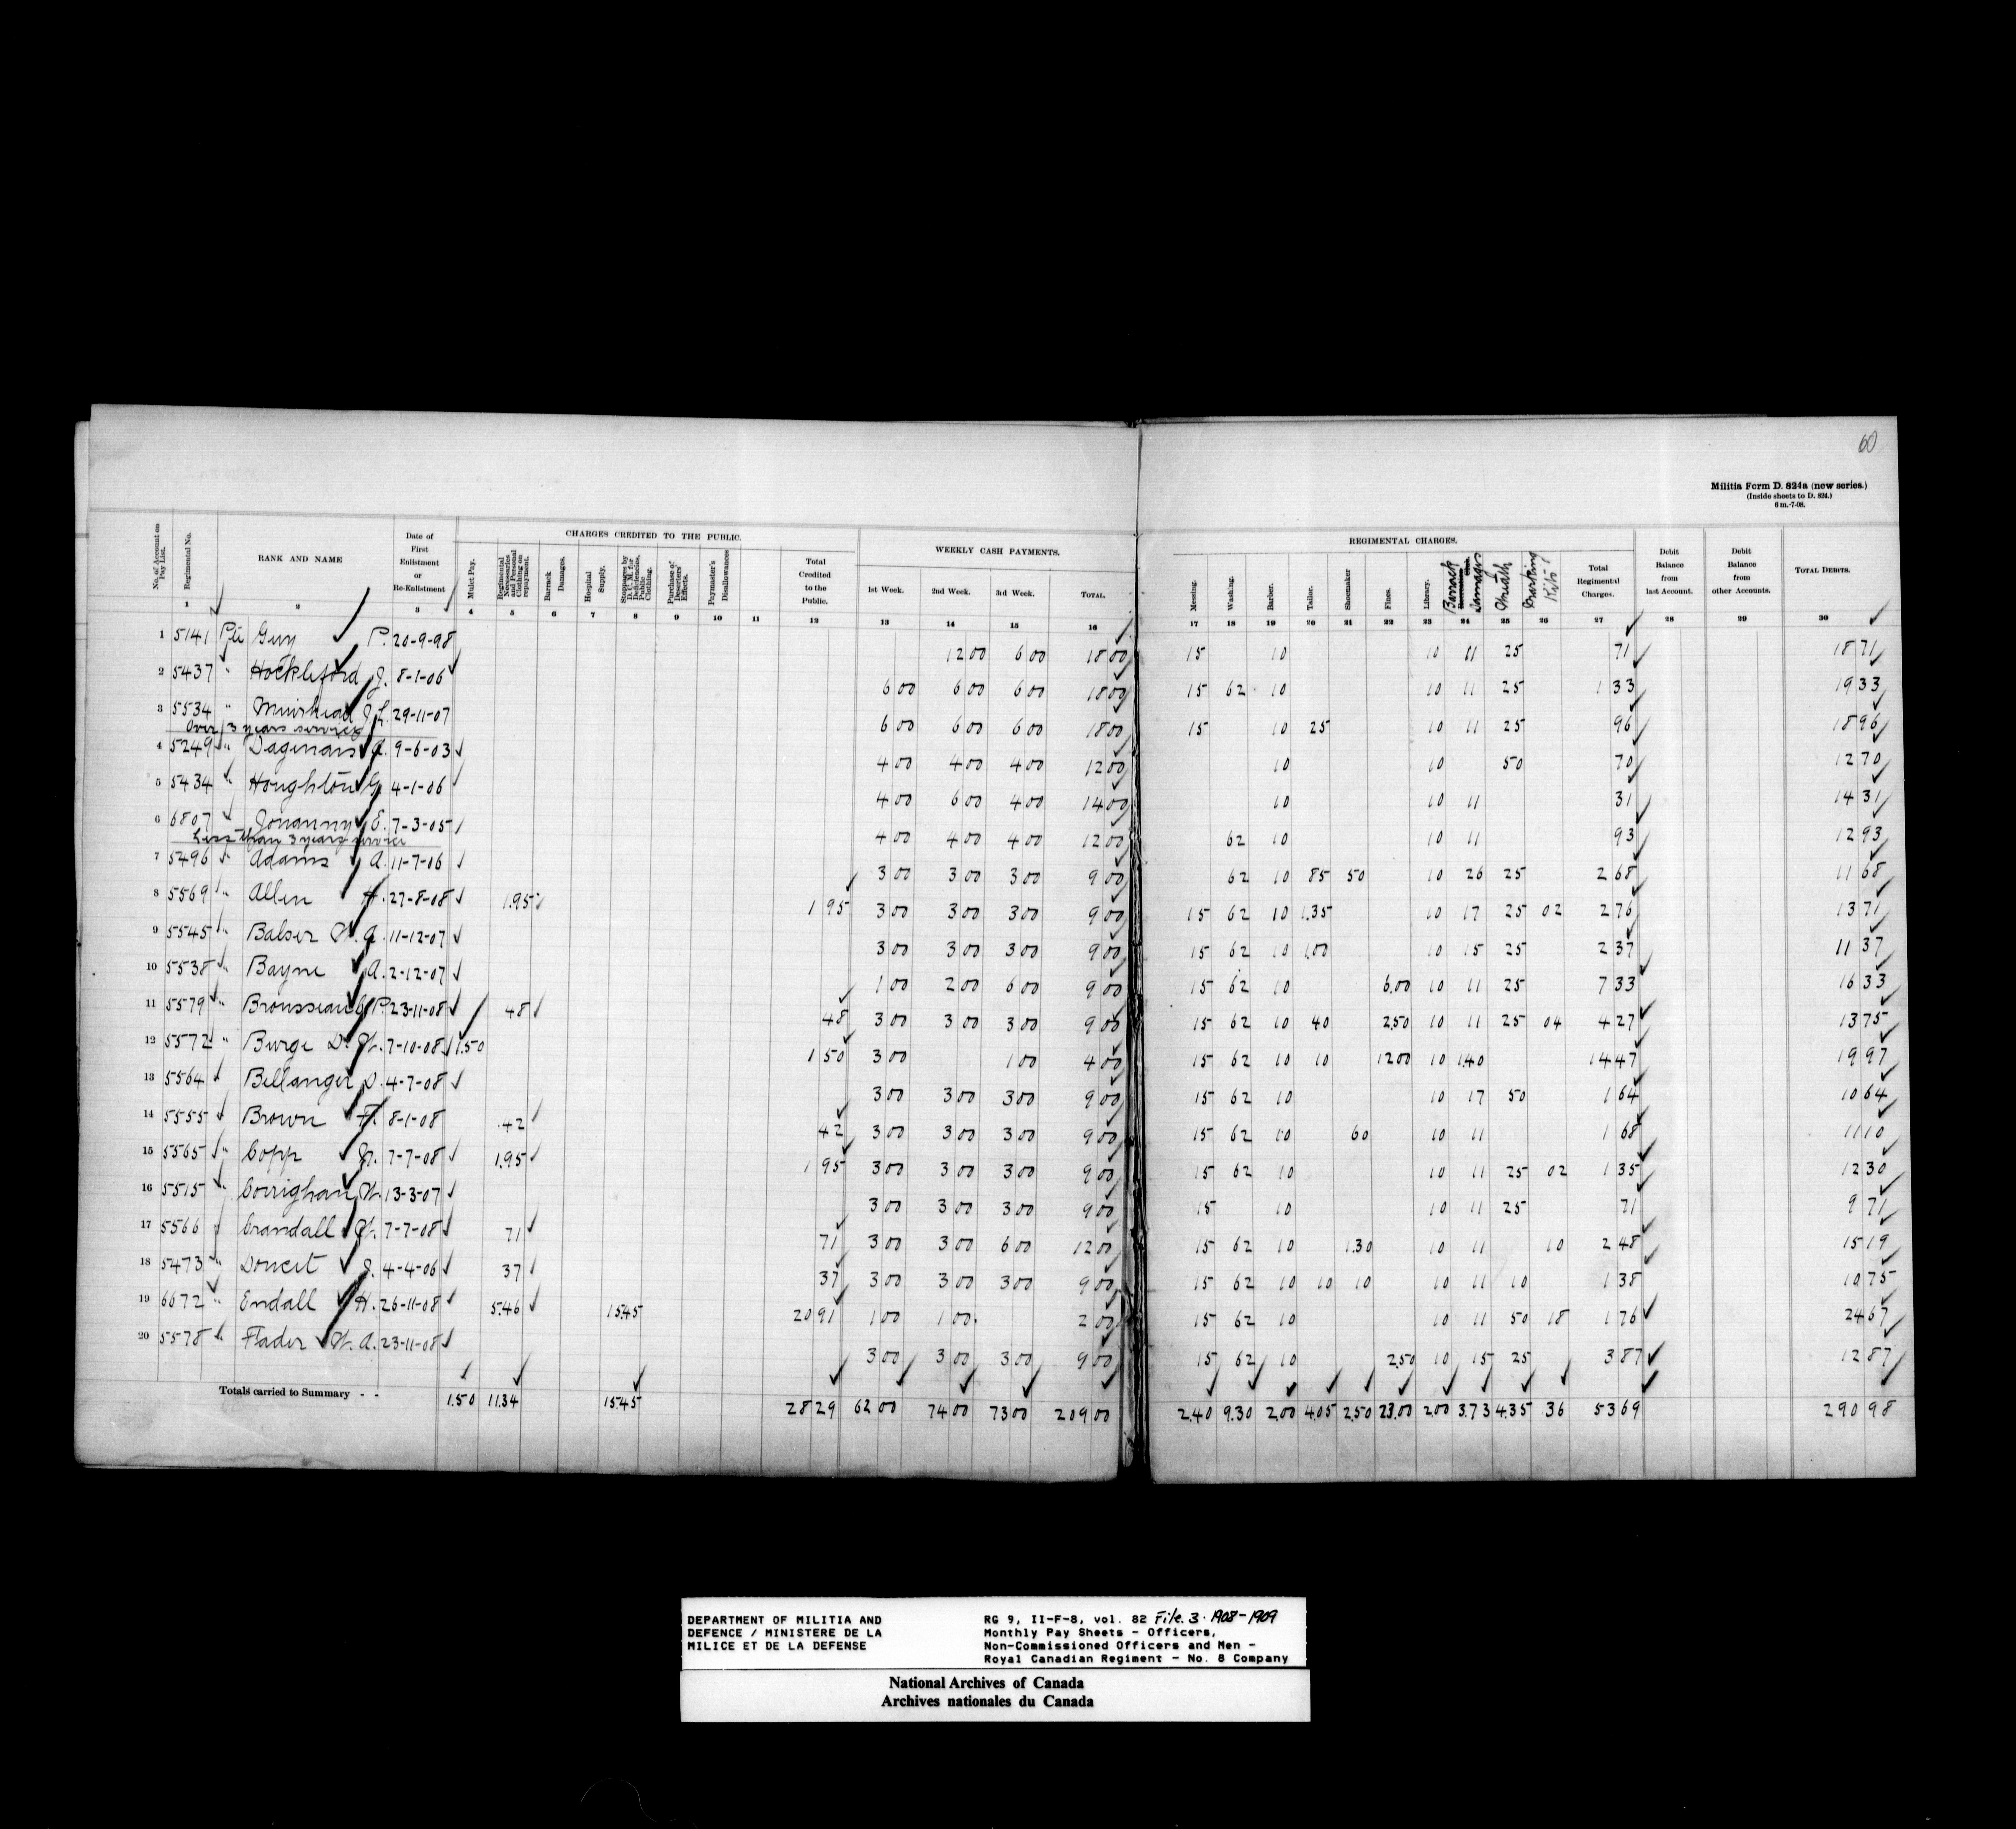 60
Militia Form D. 824a (new series.)
(Inside sheets to D. 824.)
6 m.-7-08.
No. of Account on Pay List. Regimental No. RANK AND NAME Date of First Enlistment or Re-Enlistment
CHARGES CREDITED TO THE PUBLIC.
Mulct Pay. Regimental Necessaries and Personal Clothing on repayment. Barrack Damages. Hospital Supply. Stoppages by D. C. M. for Deficiencies, Public Clothing. Purchase of Deserters' Effects. Paymaster's Disallowances Total Credited to the Public.
WEEKLY CASH PAYMENTS.
1st Week. 2nd Week. 3rd Week. TOTAL.
REGIMENTAL CHARGES.
Messing. Washing. Barber. Tailor. Shoemaker Fines. Library. Barrack Damages Marking Kits Total Regimental Charges.
Debit Balance from last Account. Debit Balance from other Accounts. TOTAL DEBITS.
1 2 3 4 5 6 7 8 9 10 11 12 13 14 15 16 17 18 19 20 21 22 23 24 25 26 27 28 29 30
1 5141 Pte Guy P. 20-9-98 12 00 6 00 18 00 15 10 10 11 25 71 18 71
2 5437 " Hockleford J. 8-1-06 6 00 6 00 6 00 18 00 15 62 10 10 11 25 1 33 19 33
3 5534 " Muirhead J. L. 29-11-07 6 00 6 00 6 00 18 00 15 10 25 10 11 25 96 18 96
Over 3 years service
4 5249 " Dagenais A. 9-6-03 4 00 4 00 4 00 12 00 10 10 50 70 12 70
5 5434 " Houghton G. 4-1-06 4 00 6 00 4 00 14 00 10 10 11 31 14 31
6 6807 " Jouanny E. 7-3-05 4 00 4 00 4 00 12 00 62 10 10 11 93 12 93
Less than 3 years service
7 5496 " Adams A. 11-7-06 3 00 3 00 3 00 9 00 62 10 85 50 10 26 25 2 68 11 68
8 5569 " Allen H. 27-8-08 1.95 1 95 3 00 3 00 3 00 9 00 15 62 10 1.35 10 17 25 02 2 76 13 71
9 5545 " Balser W. A. 11-12-07 3 00 3 00 3 00 9 00 15 62 10 1.00 10 15 25 2 37 11 37
10 5538 " Bayne A. 2-12-07 1 00 2 00 6 00 9 00 15 62 10 6.00 10 11 25 7 33 16 33
11 5579 " Brousseau P. 23-11-08 48 48 3 00 3 00 3 00 9 00 15 62 10 40 2.50 10 11 25 04 4 27 13 75
12 5572 " Burge D. W. 7-10-08 1.50 1 50 3 00 1 00 4 00 15 62 10 10 12 00 10 1.40 14 47 19 97
13 5564 Bellanger D. 4-7-08 3 00 3 00 3 00 9 00 15 62 10 10 17 50 1 64 10 64
14 5555 Brown F. 8-1-08 .42 42 3 00 3 00 3 00 9 00 15 62 10 60 10 11 1 68 11 10
15 5565 " Copp 7-7-08 1.95 1 95 3 00 3 00 3 00 9 00 15 62 10 10 11 25 02 1 35 12 30
16 5515 " Corrighan W. 13-3-07 3 00 3 00 3 00 9 00 15 10 10 11 25 71 9 71
17 5566 Crandall W. 7-7-08 71 71 3 00 3 00 6 00 12 00 15 62 10 1.30 10 11 10 2 48 15 19
18 5473 " Doucet J. 4-4-06 37 37 3 00 3 00 3 00 9 00 15 62 10 10 10 10 11 10 1 38 10 75
19 6672 " Endall H. 26-11-08 5.46 15.45 20 91 1 00 1 00 2 00 15 62 10 10 11 50 18 1 76 24 67
20 5578 " Flader W. A. 23-11-08 3 00 3 00 3 00 9 00 15 62 10 2.50 10 15 25 3 87 12 87
Totals carried to Summary - - 1.50 11.34 15.45 28 29 62 00 74 00 73 00 209 00 2.40 9.30 2.00 4.05 2.50 23.00 2.00 3.73 4.35 36 53 69 290 98
DEPARTMENT OF MILITIA AND
DEFENCE / MINISTERE DE LA
MILICE ET DE LA DEFENSE
RG 9, II-F-8, vol. 82 File. 3. 1908-1909
Monthly Pay Sheets - Officers,
Non-Commissioned Officers and Men -
Royal Canadian Regiment - No. 8 Company
National Archives of Canada
Archives nationales du Canada